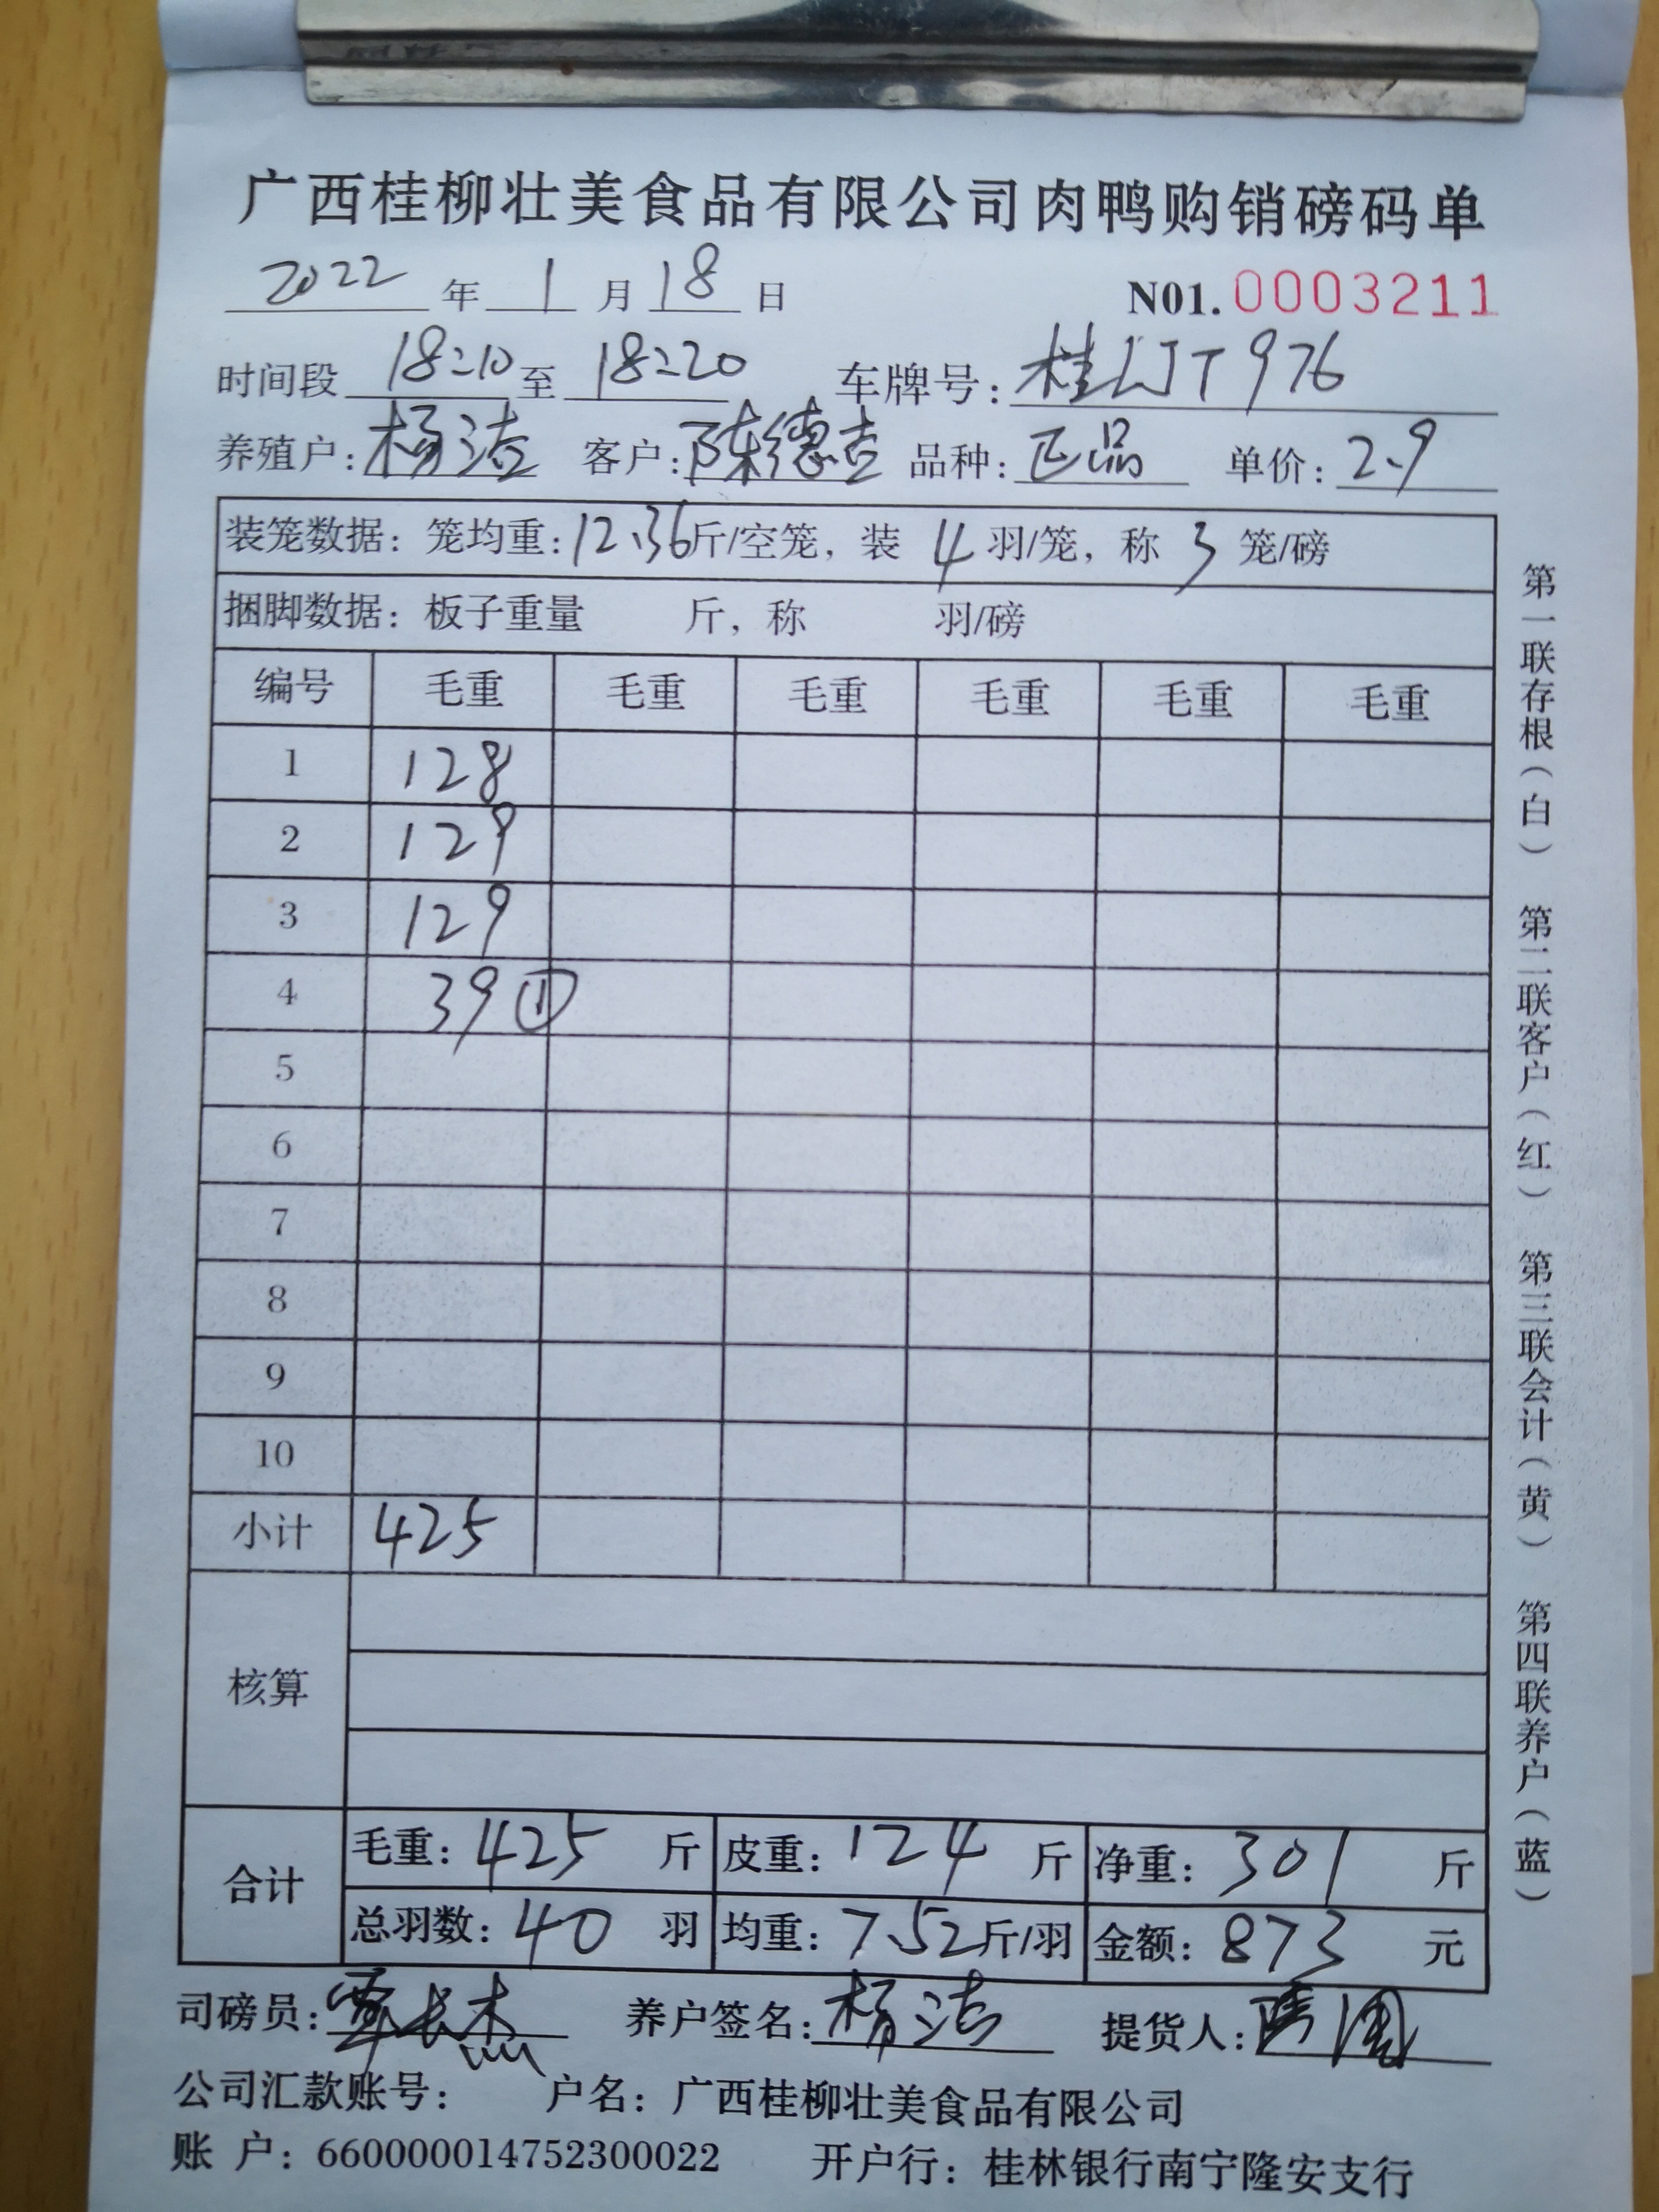 广西桂柳壮美食品有限公司肉鸭购销磅码单
2022 年 1 月 18 日 N01. 0003211
时间段 18:10 至 18:20 车牌号: 桂 JT976
养殖户: 杨洁 客户: 陈德志 品种: 正品 单价: 2.9
装笼数据: 笼均重: 12.36 斤/空笼, 装 4 羽/笼, 称 3 笼/磅
捆脚数据: 板子重量 斤, 称 羽/磅
编号 毛重 毛重 毛重 毛重 毛重 毛重
1 128
2 129
3 129
4 39 ①
5
6
7
8
9
10
小计 425
核算
合计 毛重: 425 斤 皮重: 124 斤 净重: 301 斤
总羽数: 40 羽 均重: 7.52 斤/羽 金额: 873 元
司磅员: 覃长杰 养户签名: 杨洁 提货人:
公司汇款账号: 户名: 广西桂柳壮美食品有限公司
账 户: 660000014752300022 开户行: 桂林银行南宁隆安支行
第一联存根(白) 第二联客户(红) 第三联会计(黄) 第四联养户(蓝)